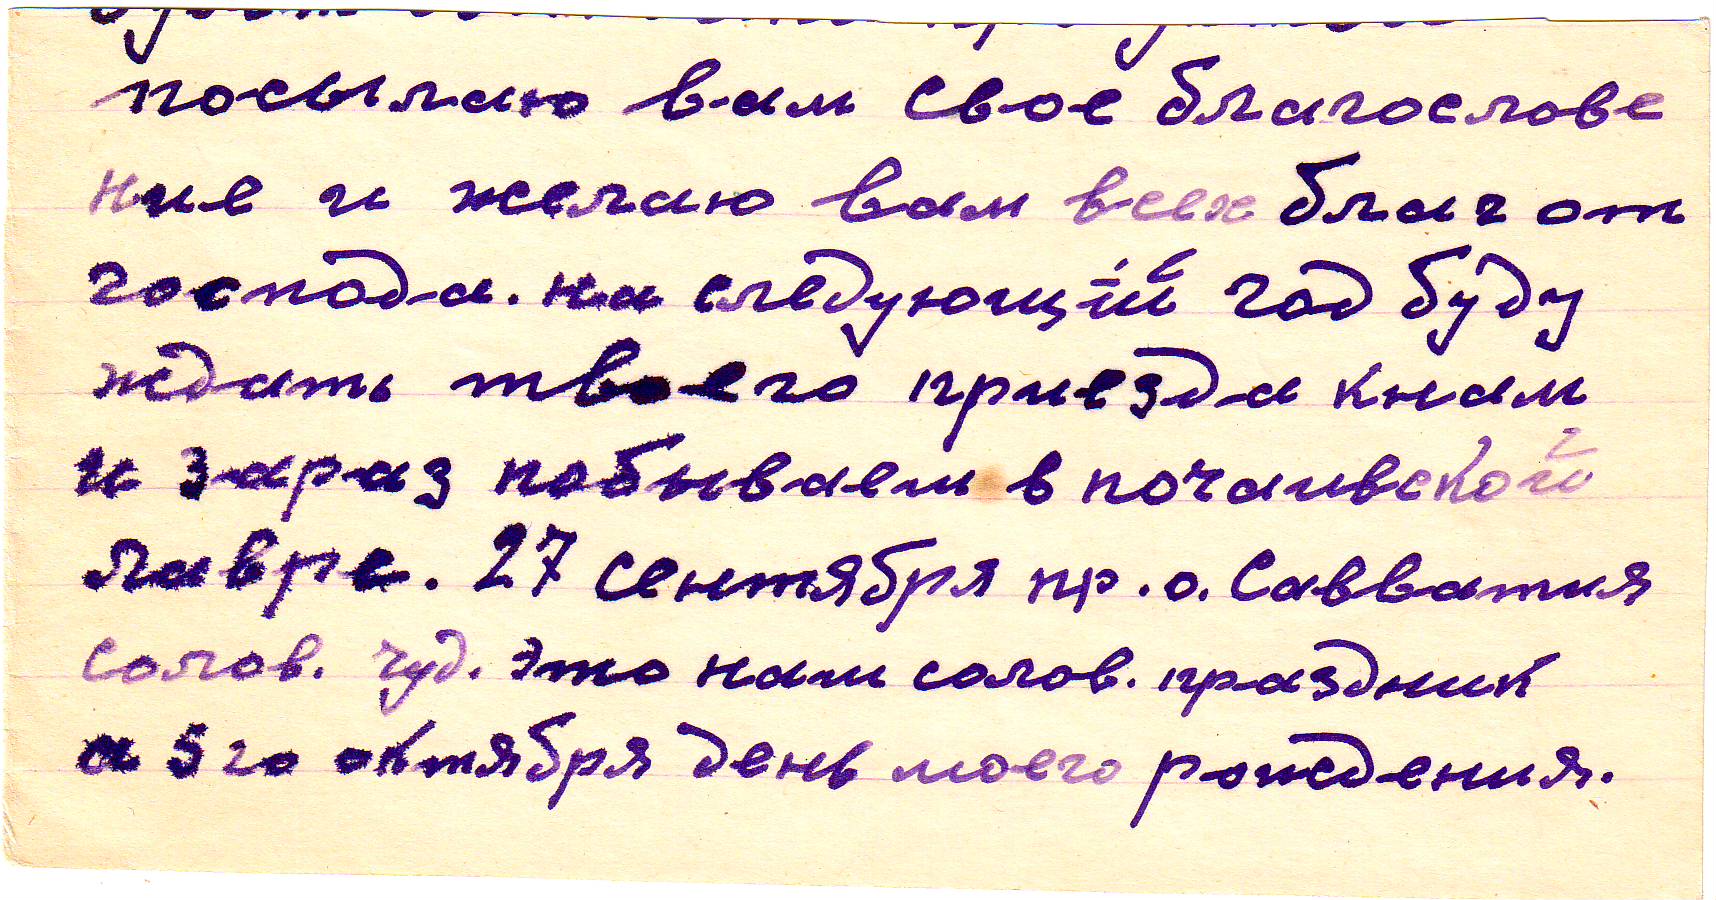 посылаю вам свое благослове
ние и желаю вам всех благ от
господа. на следующий год буду
ждать твоего приезда кнам
и зараз побываем в почаивской
лавре. 27 сентября пр. о. Савватия
солов. чуд. это наш солов. праздник
а 5 го октября день моего рождения.